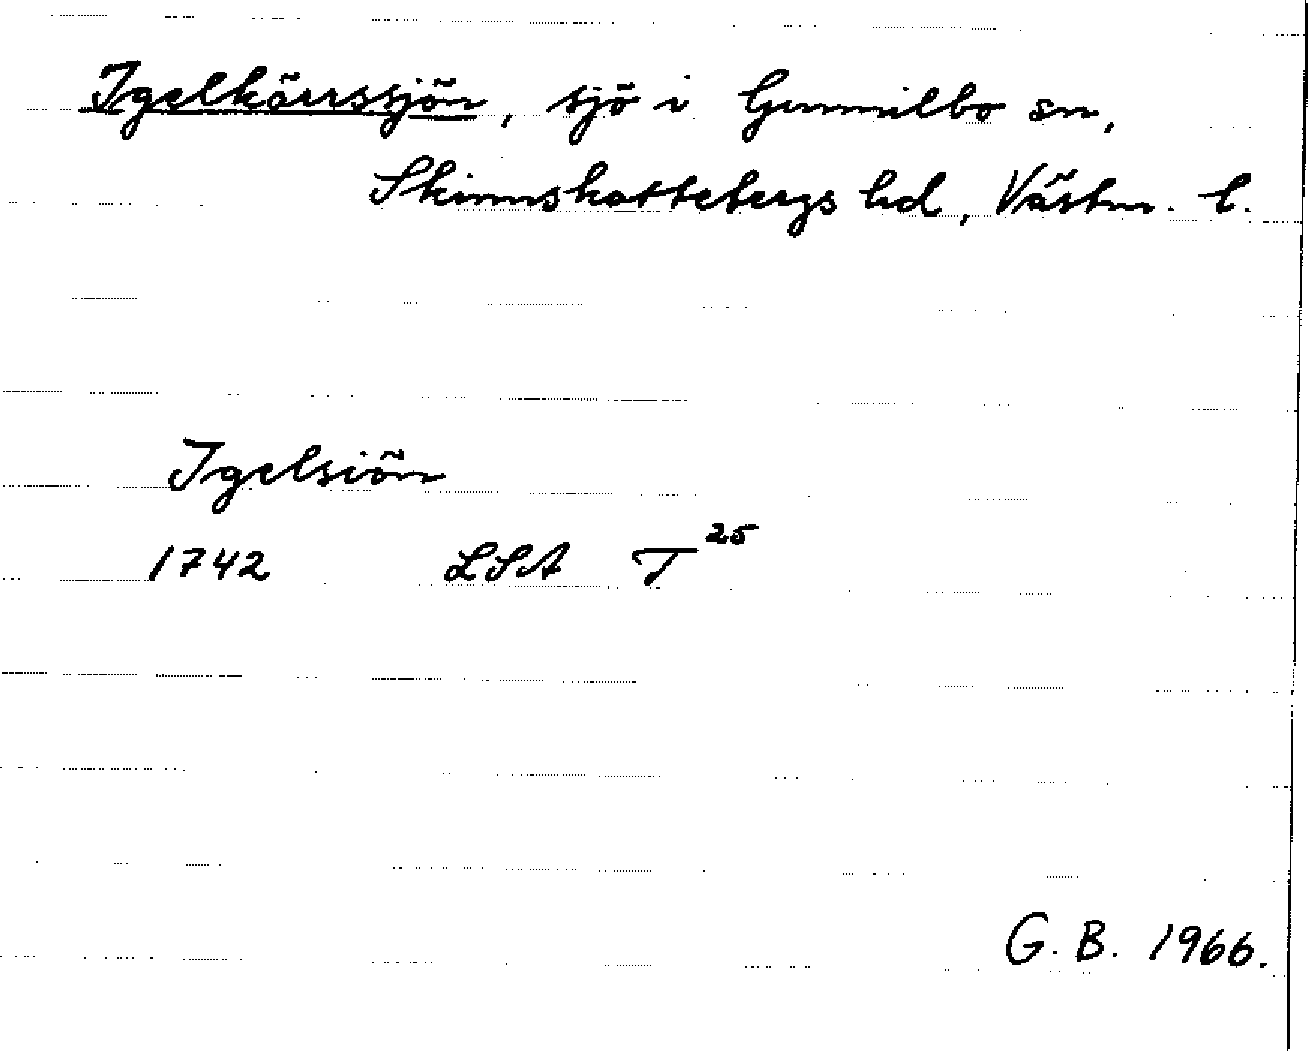 Igelkärrssjön, sjö i Gunnilbo sn,
Skinnskattebergs hd, Västm. l.
Igelsiön
1742 LSA T²⁵
G. B. 1966.